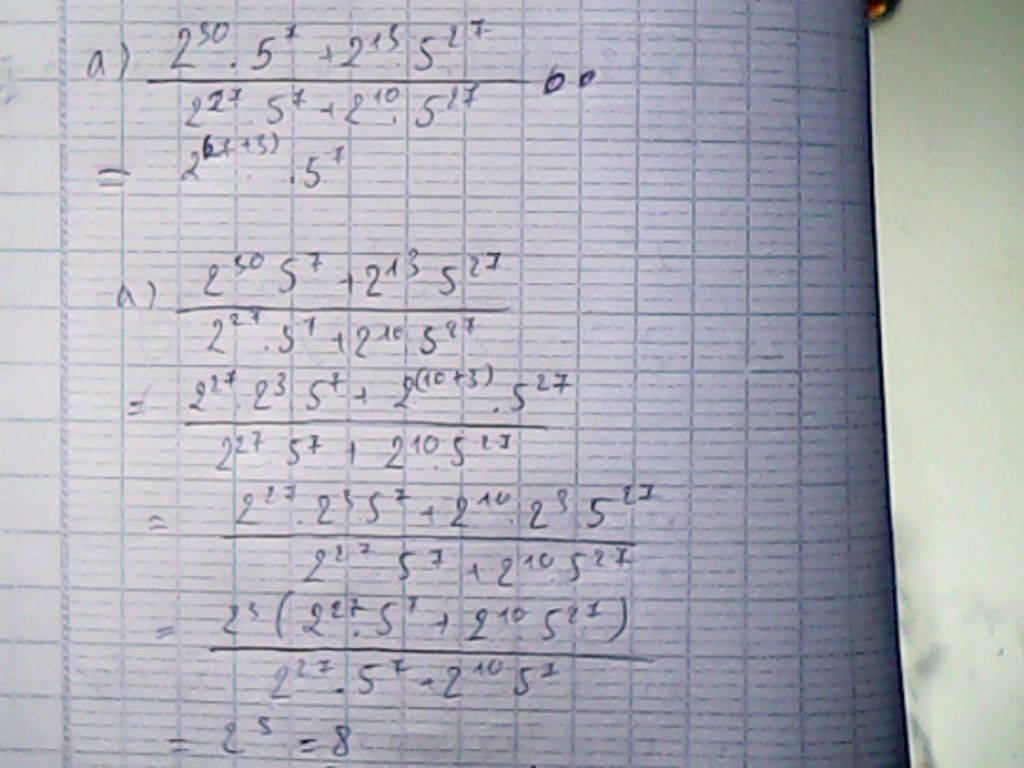 a) (2^30 . 5^7 + 2^13 . 5^27) / (2^27 . 5^7 + 2^10 . 5^27)
= 2^(27+3) . 5^7
a) (2^30 5^7 + 2^13 5^27) / (2^27 . 5^7 + 2^10 . 5^27)
= (2^27 . 2^3 5^7 + 2^(10+3) . 5^27) / (2^27 5^7 + 2^10 . 5^27)
= (2^27 . 2^3 5^7 + 2^10 . 2^3 5^27) / (2^27 5^7 + 2^10 . 5^27)
= 2^3 (2^27 . 5^7 + 2^10 . 5^27) / (2^27 . 5^7 + 2^10 5^7)
= 2^3 = 8